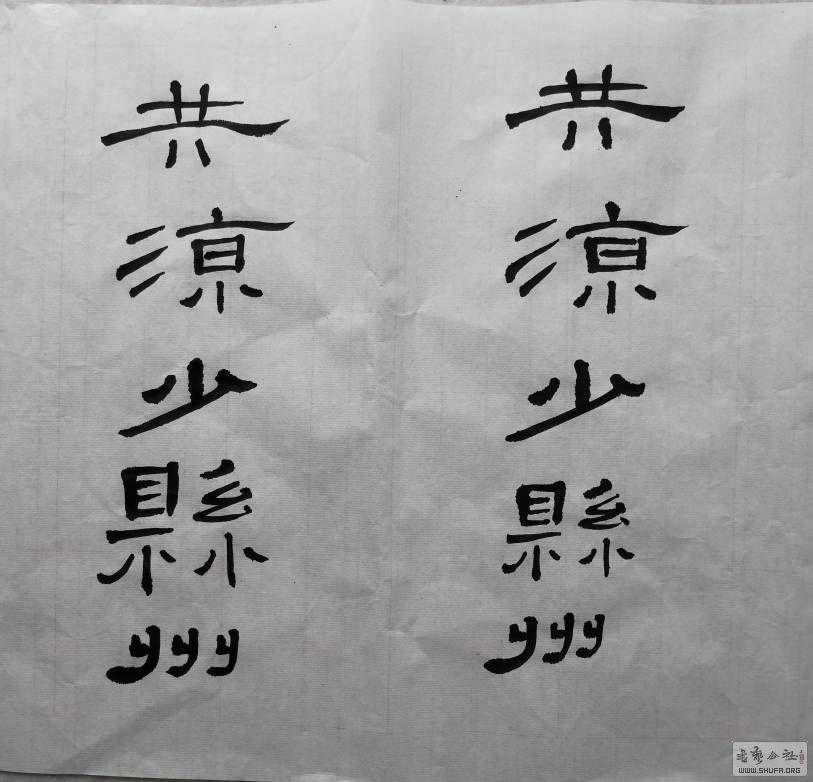 共涼少縣州
共涼少縣州
書藝公社
WWW.SHUFA.ORG